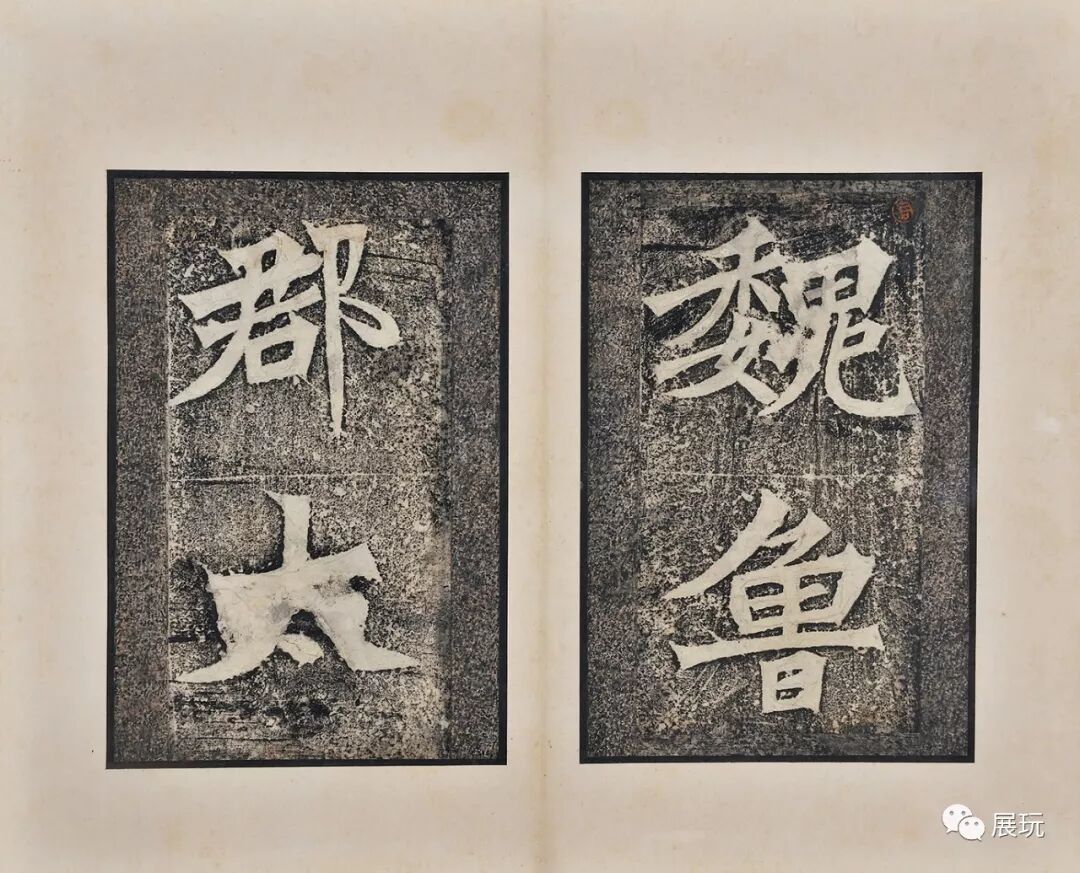 魏魯
郡太
展玩